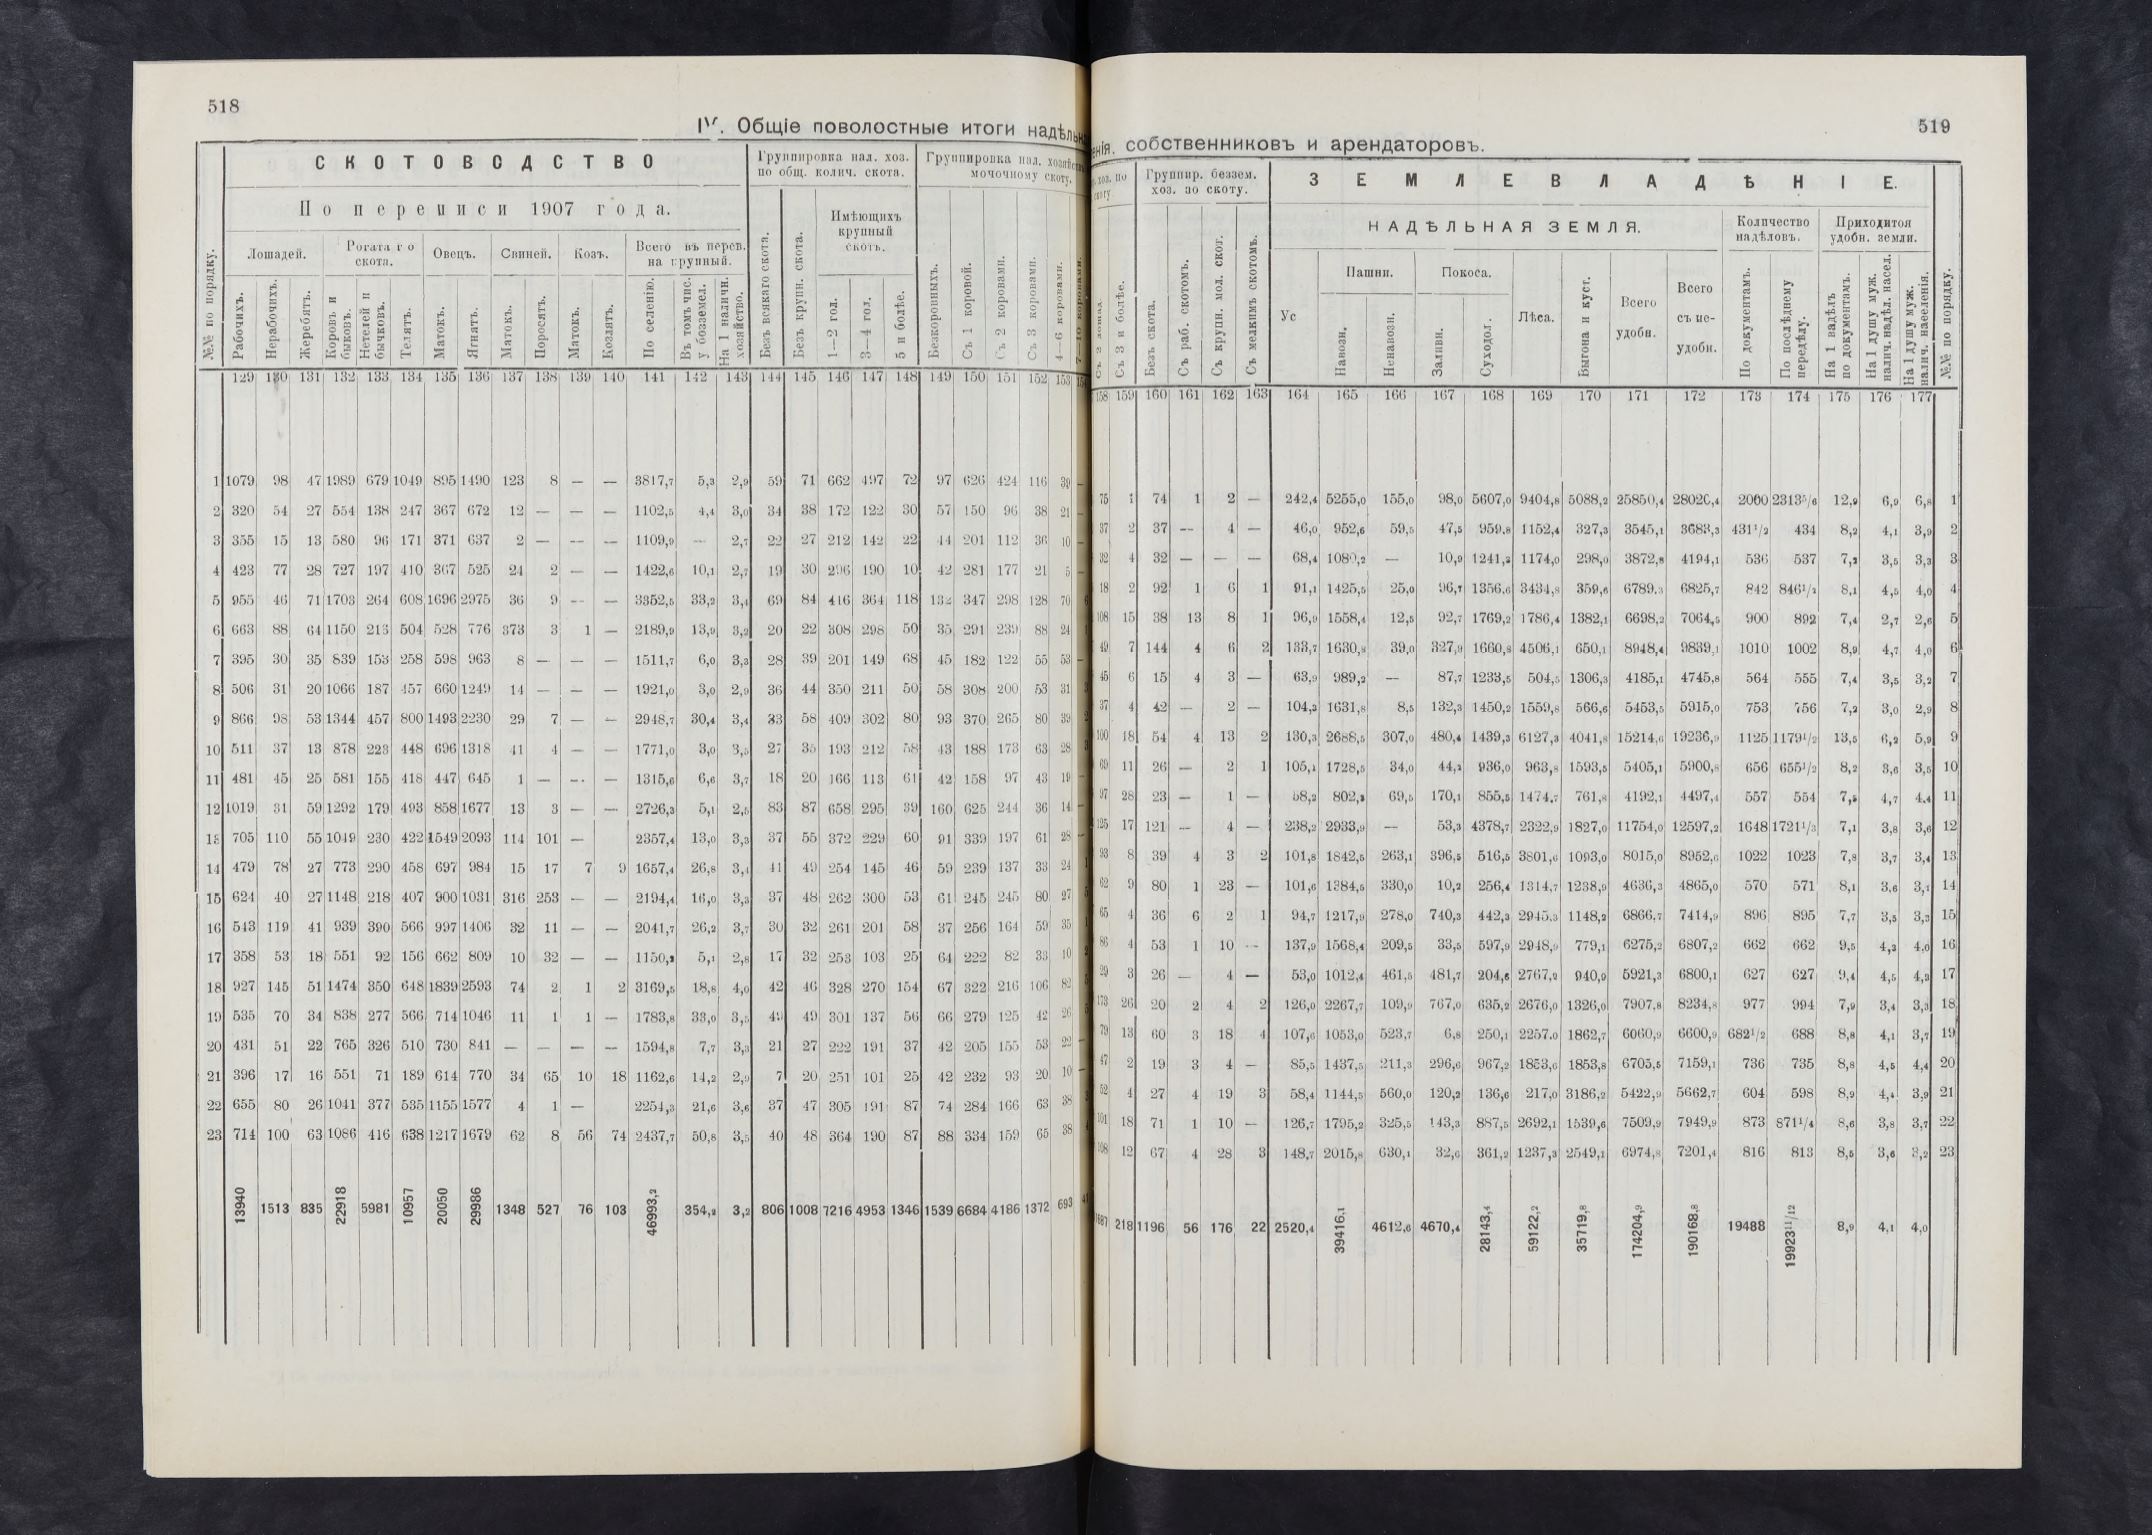 518
IV. Общіе поволостные итоги надѣльн
С К О Т О В О Д С Т В О
Группировка нал. хоз. по общ. колич. скота.
Группировка нал. хозяйств
мочочному скоту.
По переписи 1907 года.
Имѣющихъ крупный скотъ.
№№ по порядку.
Лошадей. Рогатаго скота. Овецъ. Свиней. Козъ. Всего въ перев. на крупный.
Рабочихъ. Нерабочихъ. Жеребятъ. Коровъ и быковъ. Нетелей и бычковъ. Телятъ. Матокъ. Ягнятъ. Матокъ. Поросятъ. Матокъ. Козлятъ. По селенію. Въ томъ чис. у безземел. На 1 наличн. хозяйство. Безъ всякаго скота. Безъ крупн. скота. 1—2 гол. 3—4 гол. 5 и болѣе. Безкоровныхъ. Съ 1 коровой. Съ 2 коровами. Съ 3 коровами. 4—6 коровами. 7—10 коровами.
129 130 131 132 133 134 135 136 137 138 139 140 141 142 143 144 145 146 147 148 149 150 151 152 153
1 1079 98 47 1989 679 1049 895 1490 123 8 — — 3817,7 5,3 2,9 59 71 662 497 72 97 626 424 116 39 —
2 320 54 27 554 138 247 367 672 12 — — — 1102,5 4,4 3,0 34 38 172 122 30 57 150 96 38 21 —
3 355 15 13 580 96 171 371 637 2 — — — 1109,9 — 2,7 22 27 212 142 22 44 201 112 36 10 —
4 423 77 28 727 197 410 367 525 24 2 — — 1422,6 10,1 2,7 19 30 296 190 10 42 281 177 21 5 —
5 955 46 71 1703 264 608 1696 2975 36 9 — — 3352,5 33,2 3,4 69 84 416 364 118 132 347 298 128 70 6
6 663 88 64 1150 213 504 528 776 373 3 1 — 2189,9 13,9 3,2 20 22 308 298 50 35 291 239 88 24 1
7 395 30 35 839 153 258 598 963 8 — — — 1511,7 6,0 3,3 28 39 201 149 68 45 182 122 55 53 —
8 506 31 20 1066 187 457 660 1249 14 — — — 1921,0 3,0 2,9 36 44 350 211 50 58 308 200 53 31 3
9 866 98 53 1344 457 800 1493 2230 29 7 — — 2948,7 30,4 3,4 33 58 409 302 80 93 370 265 80 39 2
10 511 37 13 878 223 448 696 1318 41 4 — — 1771,0 3,0 3,5 27 35 193 212 58 43 188 173 63 28 3
11 481 45 25 581 155 418 447 645 1 — — — 1315,6 6,6 3,7 18 20 166 113 61 42 158 97 43 19 —
12 1019 31 59 1292 179 493 858 1677 13 3 — — 2726,3 5,1 2,5 83 87 658 295 39 160 625 244 36 14 —
13 705 110 55 1049 230 422 1549 2093 114 101 — 2357,4 13,0 3,3 37 55 372 229 60 91 339 197 61 28 —
14 479 78 27 773 290 458 697 984 15 17 7 9 1657,4 26,8 3,4 41 49 254 145 46 59 239 137 33 24 1
15 624 40 27 1148 218 407 900 1031 316 253 — — 2194,4 16,0 3,3 37 48 262 300 53 61 245 245 80 27 5
16 543 119 41 939 390 566 997 1406 32 11 — — 2041,7 26,2 3,7 30 32 261 201 58 37 256 164 59 35 1
17 358 53 18 551 92 156 662 809 10 32 — — 1150,2 5,1 2,8 17 32 253 103 25 64 222 82 33 10 2
18 927 145 51 1474 350 648 1839 2593 74 2 1 2 3169,5 18,8 4,0 42 46 328 270 154 67 322 216 106 82 5
19 535 70 34 838 277 566 714 1046 11 1 1 — 1783,8 33,0 3,5 49 49 301 137 56 66 279 125 42 26
20 431 51 22 765 326 510 730 841 — — — — 1594,8 7,7 3,3 21 27 222 191 37 42 205 155 53 22 —
21 396 17 16 551 71 189 614 770 34 65 10 18 1162,6 14,2 2,9 7 20 251 101 25 42 232 93 20 10 —
22 655 80 26 1041 377 535 1155 1577 4 1 — 2254,3 21,6 3,6 37 47 305 191 87 74 284 166 63 38
23 714 100 63 1086 416 638 1217 1679 62 8 56 74 2437,7 50,8 3,5 40 48 364 190 87 88 334 159 65 38
13940 1513 835 22918 5981 10957 20050 29986 1348 527 76 103 46993,2 354,2 3,2 806 1008 7216 4953 1346 1539 6684 4186 1372 693
519
енія, собственниковъ и арендаторовъ.
хоз. по скоту
Группир. беззем. хоз. зо скоту.
З Е М Л Е В Л А Д Ѣ Н І Е.
НАДѢЛЬНАЯ ЗЕМЛЯ.
Количество надѣловъ.
Приходитоя удобн. земли.
Пашни. Покоса.
Съ 2 лошад. Съ 3 и болѣе. Безъ скота. Съ раб. скотомъ. Съ крупн. мол. скот. Съ мелкимъ скотомъ. Ус Навозн. Ненавозн. Заливн. Суходол. Лѣса. Выгона и куст. Всего удобн. Всего съ неудобн. По документамъ. По послѣднему передѣлу. На 1 надѣлъ по документамъ. На 1 душу муж. налич. надѣл. насел. На 1 душу муж. налич. населенія. №№ по порядку.
158 159 160 161 162 163 164 165 166 167 168 169 170 171 172 173 174 175 176 177
75 1 74 1 2 — 242,4 5255,0 155,0 98,0 5607,0 9404,8 5088,2 25850,4 28020,4 2000 2313⁵/₆ 12,9 6,9 6,8 1
37 2 37 — 4 — 46,0 952,6 59,5 47,5 959,8 1152,4 327,3 3545,1 3683,3 431¹/₂ 434 8,2 4,1 3,9 2
32 4 32 — — — 68,4 1080,2 — 10,9 1241,3 1174,0 298,0 3872,8 4194,1 536 537 7,2 3,5 3,3 3
18 2 92 1 6 1 91,1 1425,5 25,0 96,7 1356,6 3434,8 359,6 6789,3 6825,7 842 846¹/₂ 8,1 4,5 4,0 4
108 15 38 13 8 1 96,9 1558,4 12,5 92,7 1769,2 1786,4 1382,1 6698,2 7064,5 900 892 7,4 2,7 2,6 5
49 7 144 4 6 2 133,7 1630,8 39,0 327,9 1660,8 4506,1 650,1 8948,4 9839,1 1010 1002 8,9 4,7 4,0 6
45 6 15 4 3 — 63,9 989,2 — 87,7 1233,5 504,5 1306,3 4185,1 4745,8 564 555 7,4 3,5 3,2 7
37 4 42 — 2 — 104,3 1631,8 8,5 132,3 1450,2 1559,8 566,6 5453,5 5915,0 753 756 7,2 3,0 2,9 8
100 18 54 4 13 2 130,3 2688,5 307,0 480,4 1439,3 6127,3 4041,8 15214,6 19236,9 1125 1179¹/₂ 13,5 6,2 5,9 9
69 11 26 — 2 1 105,1 1728,5 34,0 44,2 936,0 963,8 1593,5 5405,1 5900,8 656 655¹/₂ 8,2 3,6 3,5 10
97 28 23 — 1 — 58,2 802,3 69,5 170,1 855,5 1474,7 761,8 4192,1 4497,4 557 554 7,5 4,7 4,4 11
125 17 121 — 4 — 238,2 2933,9 — 53,3 4378,7 2322,9 1827,0 11754,0 12597,2 1648 1721¹/₃ 7,1 3,8 3,6 12
93 8 39 4 3 2 101,8 1842,5 263,1 396,5 516,5 3801,6 1093,0 8015,0 8952,6 1022 1023 7,8 3,7 3,4 13
62 9 80 1 23 — 101,6 1384,5 330,0 10,2 256,4 1314,7 1238,9 4636,3 4865,0 570 571 8,1 3,6 3,1 14
65 4 36 6 2 1 94,7 1217,9 278,0 740,3 442,3 2945,3 1148,2 6866,7 7414,9 896 895 7,7 3,5 3,3 15
86 4 53 1 10 — 137,9 1568,4 209,5 33,5 597,9 2948,9 779,1 6275,2 6807,2 662 662 9,5 4,3 4,0 16
29 3 26 — 4 — 53,0 1012,4 461,5 481,7 204,6 2767,2 940,9 5921,3 6800,1 627 627 9,4 4,5 4,3 17
173 26 20 2 4 2 126,0 2267,7 109,9 767,0 635,2 2676,0 1326,0 7907,8 8234,8 977 994 7,9 3,4 3,3 18
79 13 60 3 18 4 107,6 1053,0 523,7 6,8 250,1 2257,0 1862,7 6060,9 6600,9 682¹/₂ 688 8,8 4,1 3,7 19
47 2 19 3 4 — 85,5 1437,5 211,3 296,6 967,2 1853,6 1853,8 6705,5 7159,1 736 735 8,8 4,5 4,4 20
52 4 27 4 19 3 58,4 1144,5 560,0 120,2 136,6 217,0 3186,2 5422,9 5662,7 604 598 8,9 4,4 3,9 21
101 18 71 1 10 — 126,7 1795,2 325,5 143,3 887,5 2692,1 1539,6 7509,9 7949,9 873 871¹/₄ 8,6 3,8 3,7 22
108 12 67 4 28 3 148,7 2015,8 630,1 32,6 361,2 1237,3 2549,1 6974,8 7201,4 816 813 8,5 3,6 3,2 23
1687 218 1196 56 176 22 2520,4 39416,1 4612,6 4670,4 28143,4 59122,2 35719,8 174204,9 190168,8 19488 19923¹¹/₁₂ 8,9 4,1 4,0